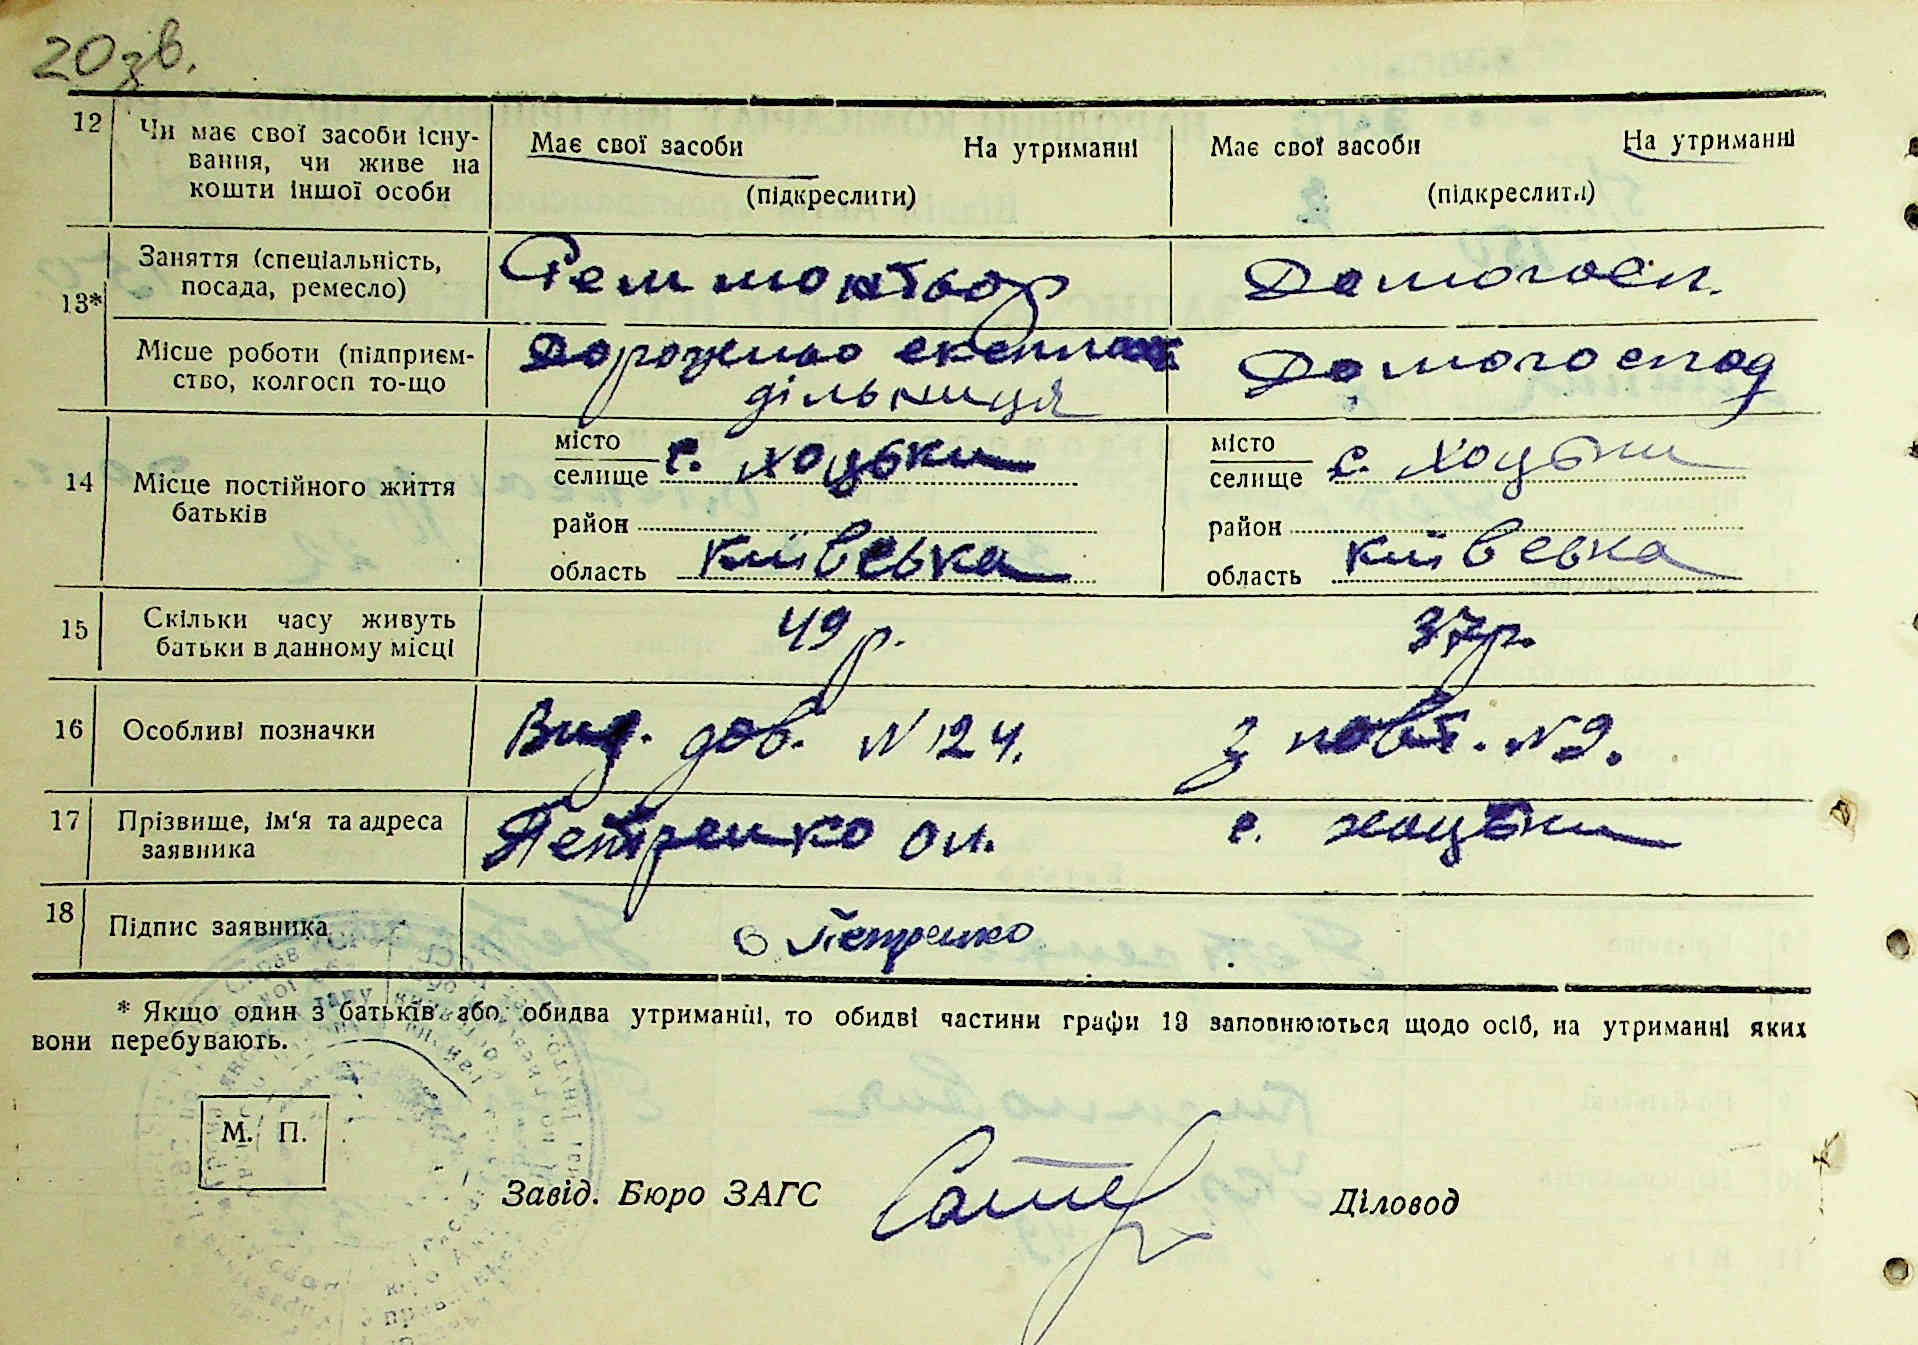 20 зв.
12 Чи має свої засоби існу- Має свої засоби На утриманні Має свої засоби На утриманні
вання, чи живе на
кошти іншої особи (підкреслити) (підкреслити)
13* Заняття (спеціальність, Реммонтьор Домогосп.
посада, ремесло)
Місце роботи (підприєм- Дорожньо Домогоспод
ство, колгосп то-що дільниця
14 Місце постійного життя місто с. Хоцьки місто с. Хоцьки
батьків селище селище
район район
область Київська область Київська
15 Скільки часу живуть 49 р. 37 р.
батьки в данному місці
16 Особливі позначки Вид. дов. N 124. з повт. N 9.
17 Прізвище, ім'я та адреса Петренко Ол. с. Хоцьки
заявника
18 Підпис заявника О Петренко
* Якщо один з батьків або обидва утриманці, то обидві частини графи 13 заповнюються щодо осіб, на утриманні яких
вони перебувають.
М. П.
Завід. Бюро ЗАГС Діловод